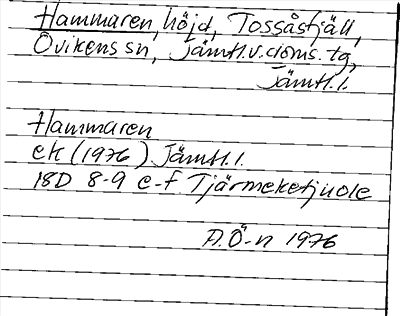 Hammaren, höjd, Tossåsfjäll,
Ovikens sn, Jämtl.v.doms. tg,
Jämtl.l.
Hammaren
ek (1976) Jämtl.l.
18D 8-9 e-f Tjärmeketjuole
A.Ö-n 1976